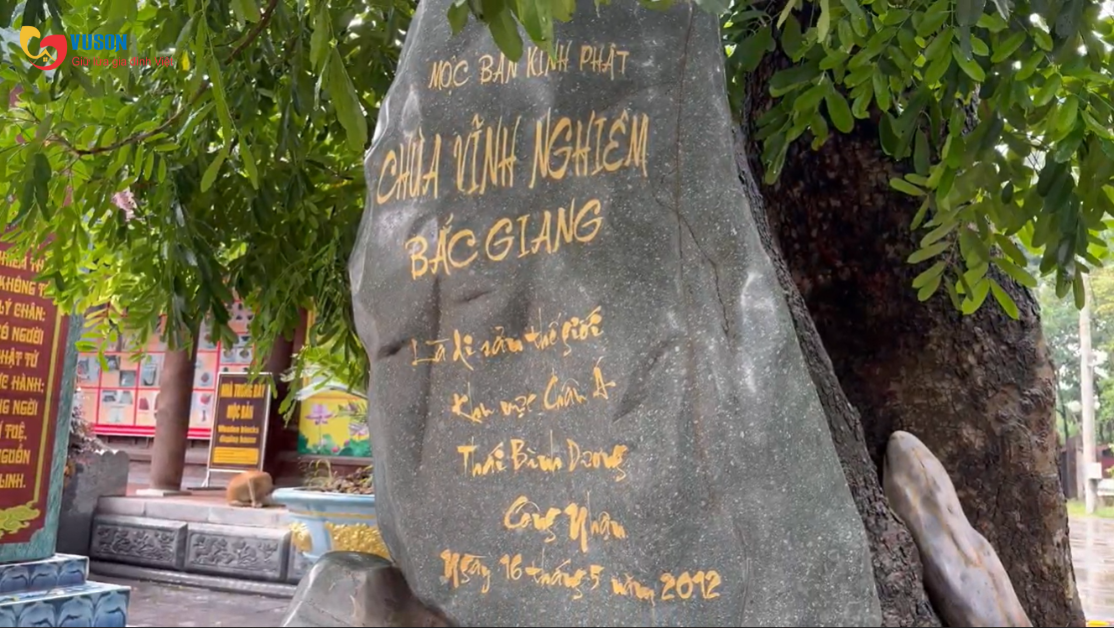 VUSON
MỘC BẢN KINH PHẬT
CHÙA VĨNH NGHIÊM
BẮC GIANG
Là di sản thế giới
Khu vực Châu Á
Thái Bình Dương
Công Nhận
Ngày 16 tháng 5 năm 2012
KHÔNG T
LÝ CHÂN:
CÓ NGƯỜI
PHẬT TỬ
HÀNH:
NGƯỜI
TUỆ,
NGUỒN
LINH.
NHÀ TRƯNG BÀY
MỘC BẢN
Wooden blocks
display house